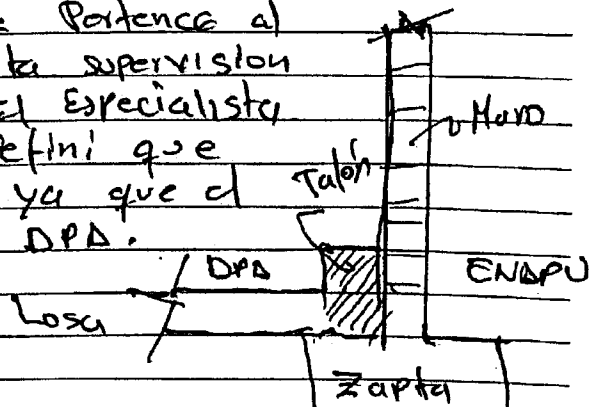 : Portence al
ta supervision
el Especialista
efini que
ya que el
DPA.
Talón
Muro
DPA
ENAPU
Losa
Zapta